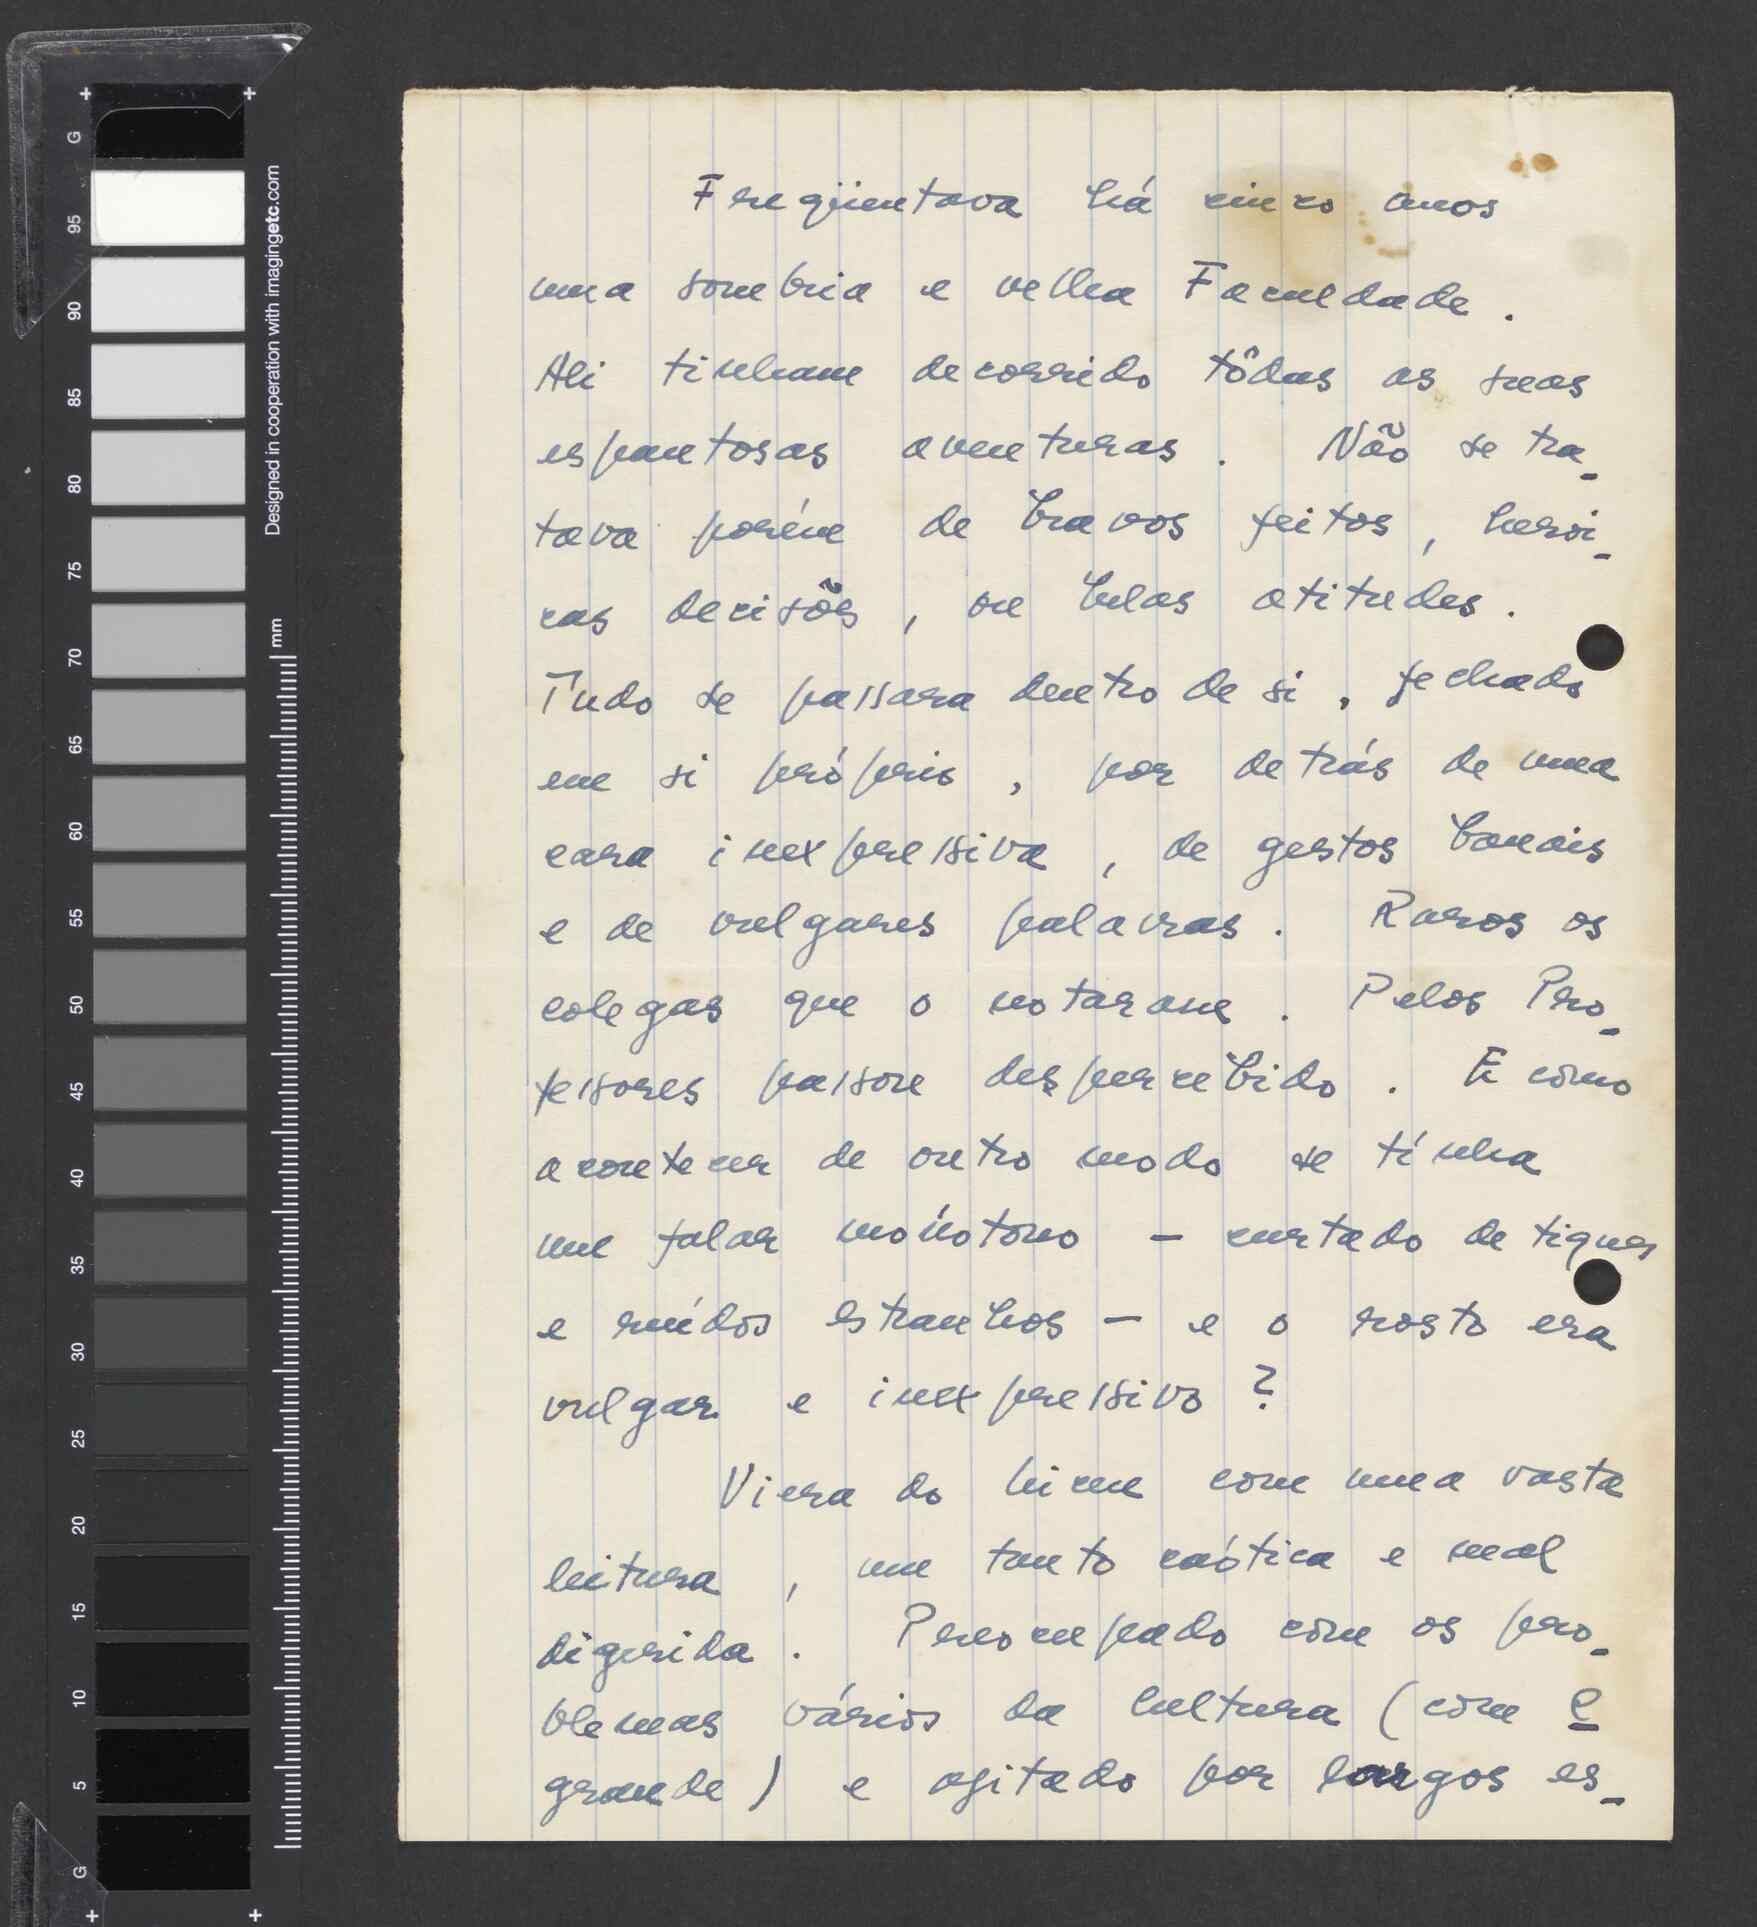 Freqüentava há cinco anos
uma sombria e velha Faculdade.
Ali tinham decorrido tôdas as suas
espantosas aventuras. Não se tra-
tava porém de bravos feitos, herói-
cas decisões, ou belas atitudes.
Tudo se passara dentro de si, fechado
em si próprio, por detrás de uma
cara inexpressiva, de gestos banais
e de vulgares palavras. Raros os
colegas que o notaram. Pelos Pro-
fessores passou despercebido. E como
acontecer de outro modo se tinha
um falar monótono – cortado de tiques
e ruídos estranhos – e o rosto era
vulgar e inexpressivo?
Viera do liceu com uma vasta
leitura, um tanto caótica e mal
digerida. Preocupado com os pro-
blemas vários da Cultura (com C
grande) e agitado por largos es-
G
95
90
85
80
75
70
65
60
55
50
45
40
35
30
25
20
15
10
5
G
Designed in cooperation with imagingetc.com
mm